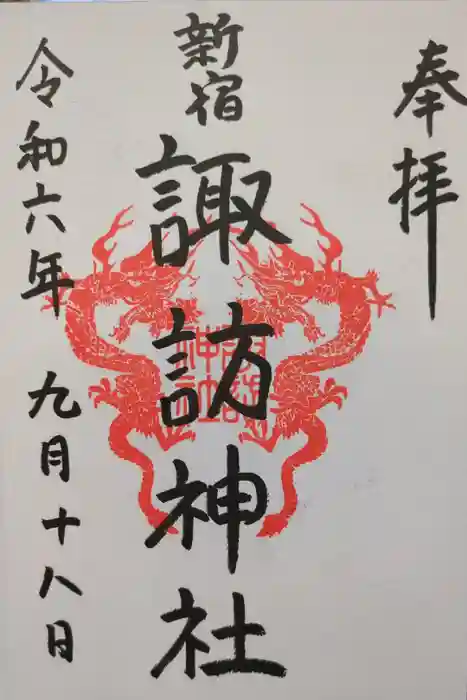 奉拝
新宿
諏訪神社
令和六年 九月十八日
諏訪
神社